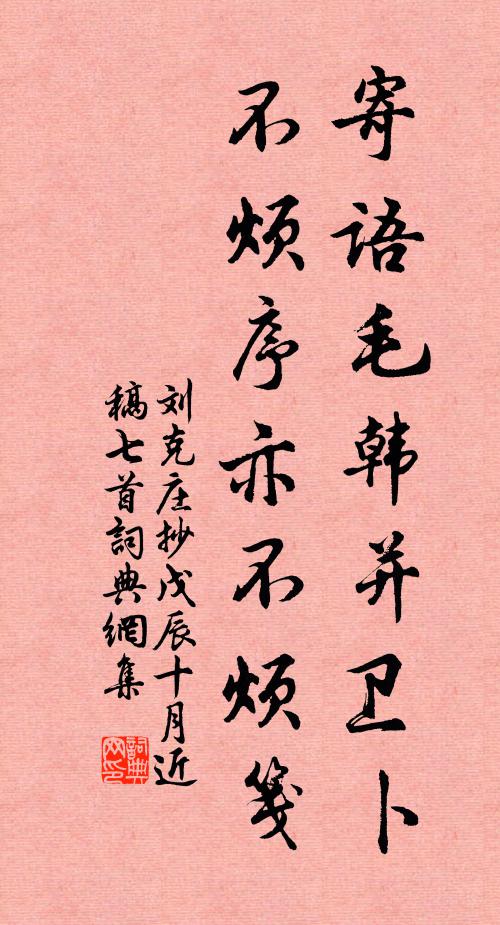 寄语毛韩并卫卜
不烦序亦不烦笺
刘克庄抄戊辰十月近
稿七首詞典網集
詞典
网印